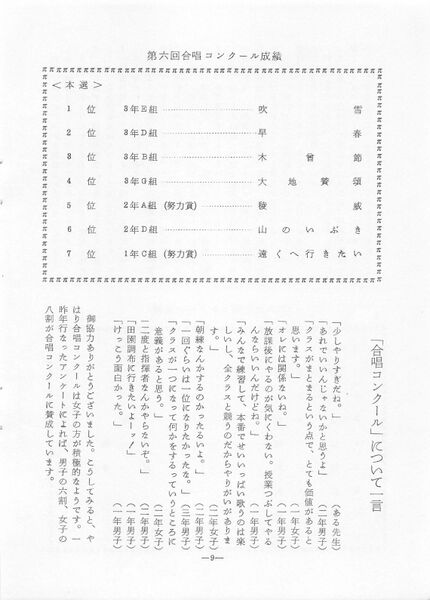 第六回合唱コンクール成績
<本選>
1位 3年E組 吹雪
2位 3年D組 早春
3位 3年B組 木曽節
4位 3年G組 大地讃頌
5位 2年A組(努力賞) 稜威
6位 2年D組 山のいぶき
7位 1年C組(努力賞) 遠くへ行きたい
「合唱コンクール」について一言
「少しやりすぎだね。」 (ある先生)
「あれでいいんじゃないかと思うよ」 (二年男子)
「クラスがまとまるという点で、とても価値があると
思います。」 (一年女子)
「オレには関係ないね。」 (一年男子)
「放課後にやるのが気にくわない。授業つぶしてやる
んならいいんだけどね。」 (二年男子)
「みんなで練習して、本番でせいいっぱい歌うのは楽
しいし、全クラスと競うのだからやりがいがありま
す。」 (二年女子)
「朝練なんかするのかったるいよ。」 (二年男子)
「一回ぐらいは一位になりたかったな。」 (三年男子)
「クラスが一つになって何かをするっていうところに
意義があると思う。」 (二年女子)
「二度と指揮者なんかやらないぞ。」 (二年男子)
「田園調布に行きたいよーッ!」 (一年男子)
「けっこう面白かった。」 (一年男子)
御協力ありがとうございました。こうしてみると、や
はり合唱コンクールは女子の方が積極的なようです。一
昨年行なったアンケートによれば、男子の六割、女子の
八割が合唱コンクールに賛成しています。
—9—